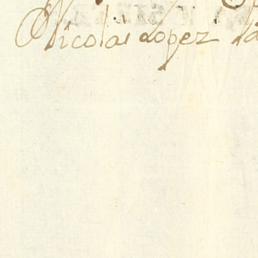 Nicolas Lopez